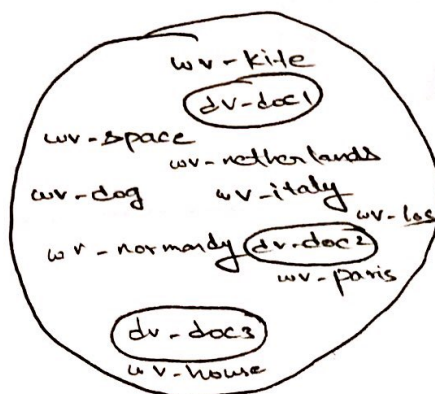 wv-kite
dv-doc1
wv-space
wv-netherlands
wv-dog wv-italy
wv-los
wv-normandy dv-doc2
wv-paris
dv-doc3
wv-house